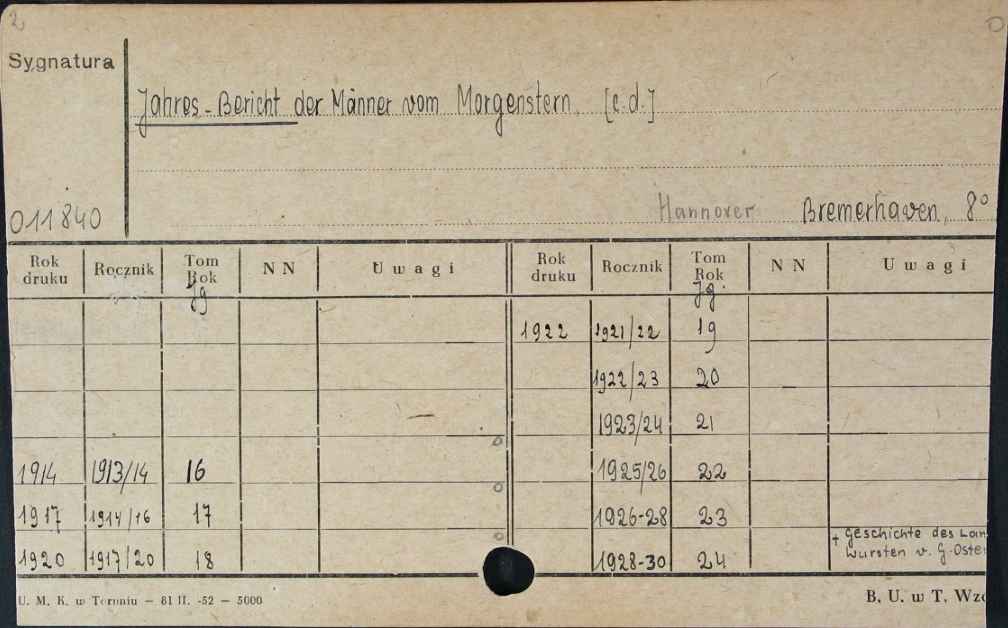 2
Sygnatura
Jahres-Bericht der Männer vom Morgenstern. [c.d.]
011840
Hannover Bremerhaven, 8°
Rok druku Rocznik Tom Rok Jg NN Uwagi Rok druku Rocznik Tom Rok Jg. NN Uwagi
1922 1921/22 19
1922/23 20
1923/24 21
1914 1913/14 16 1925/26 22
1917 1914/16 17 1926-28 23
+ Geschichte des Lan
1920 1917/20 18 1928-30 24 Wursten v. G. Oste
U. M. K. w Toruniu — 81 II. -52 — 5000
B. U. w T. Wzó